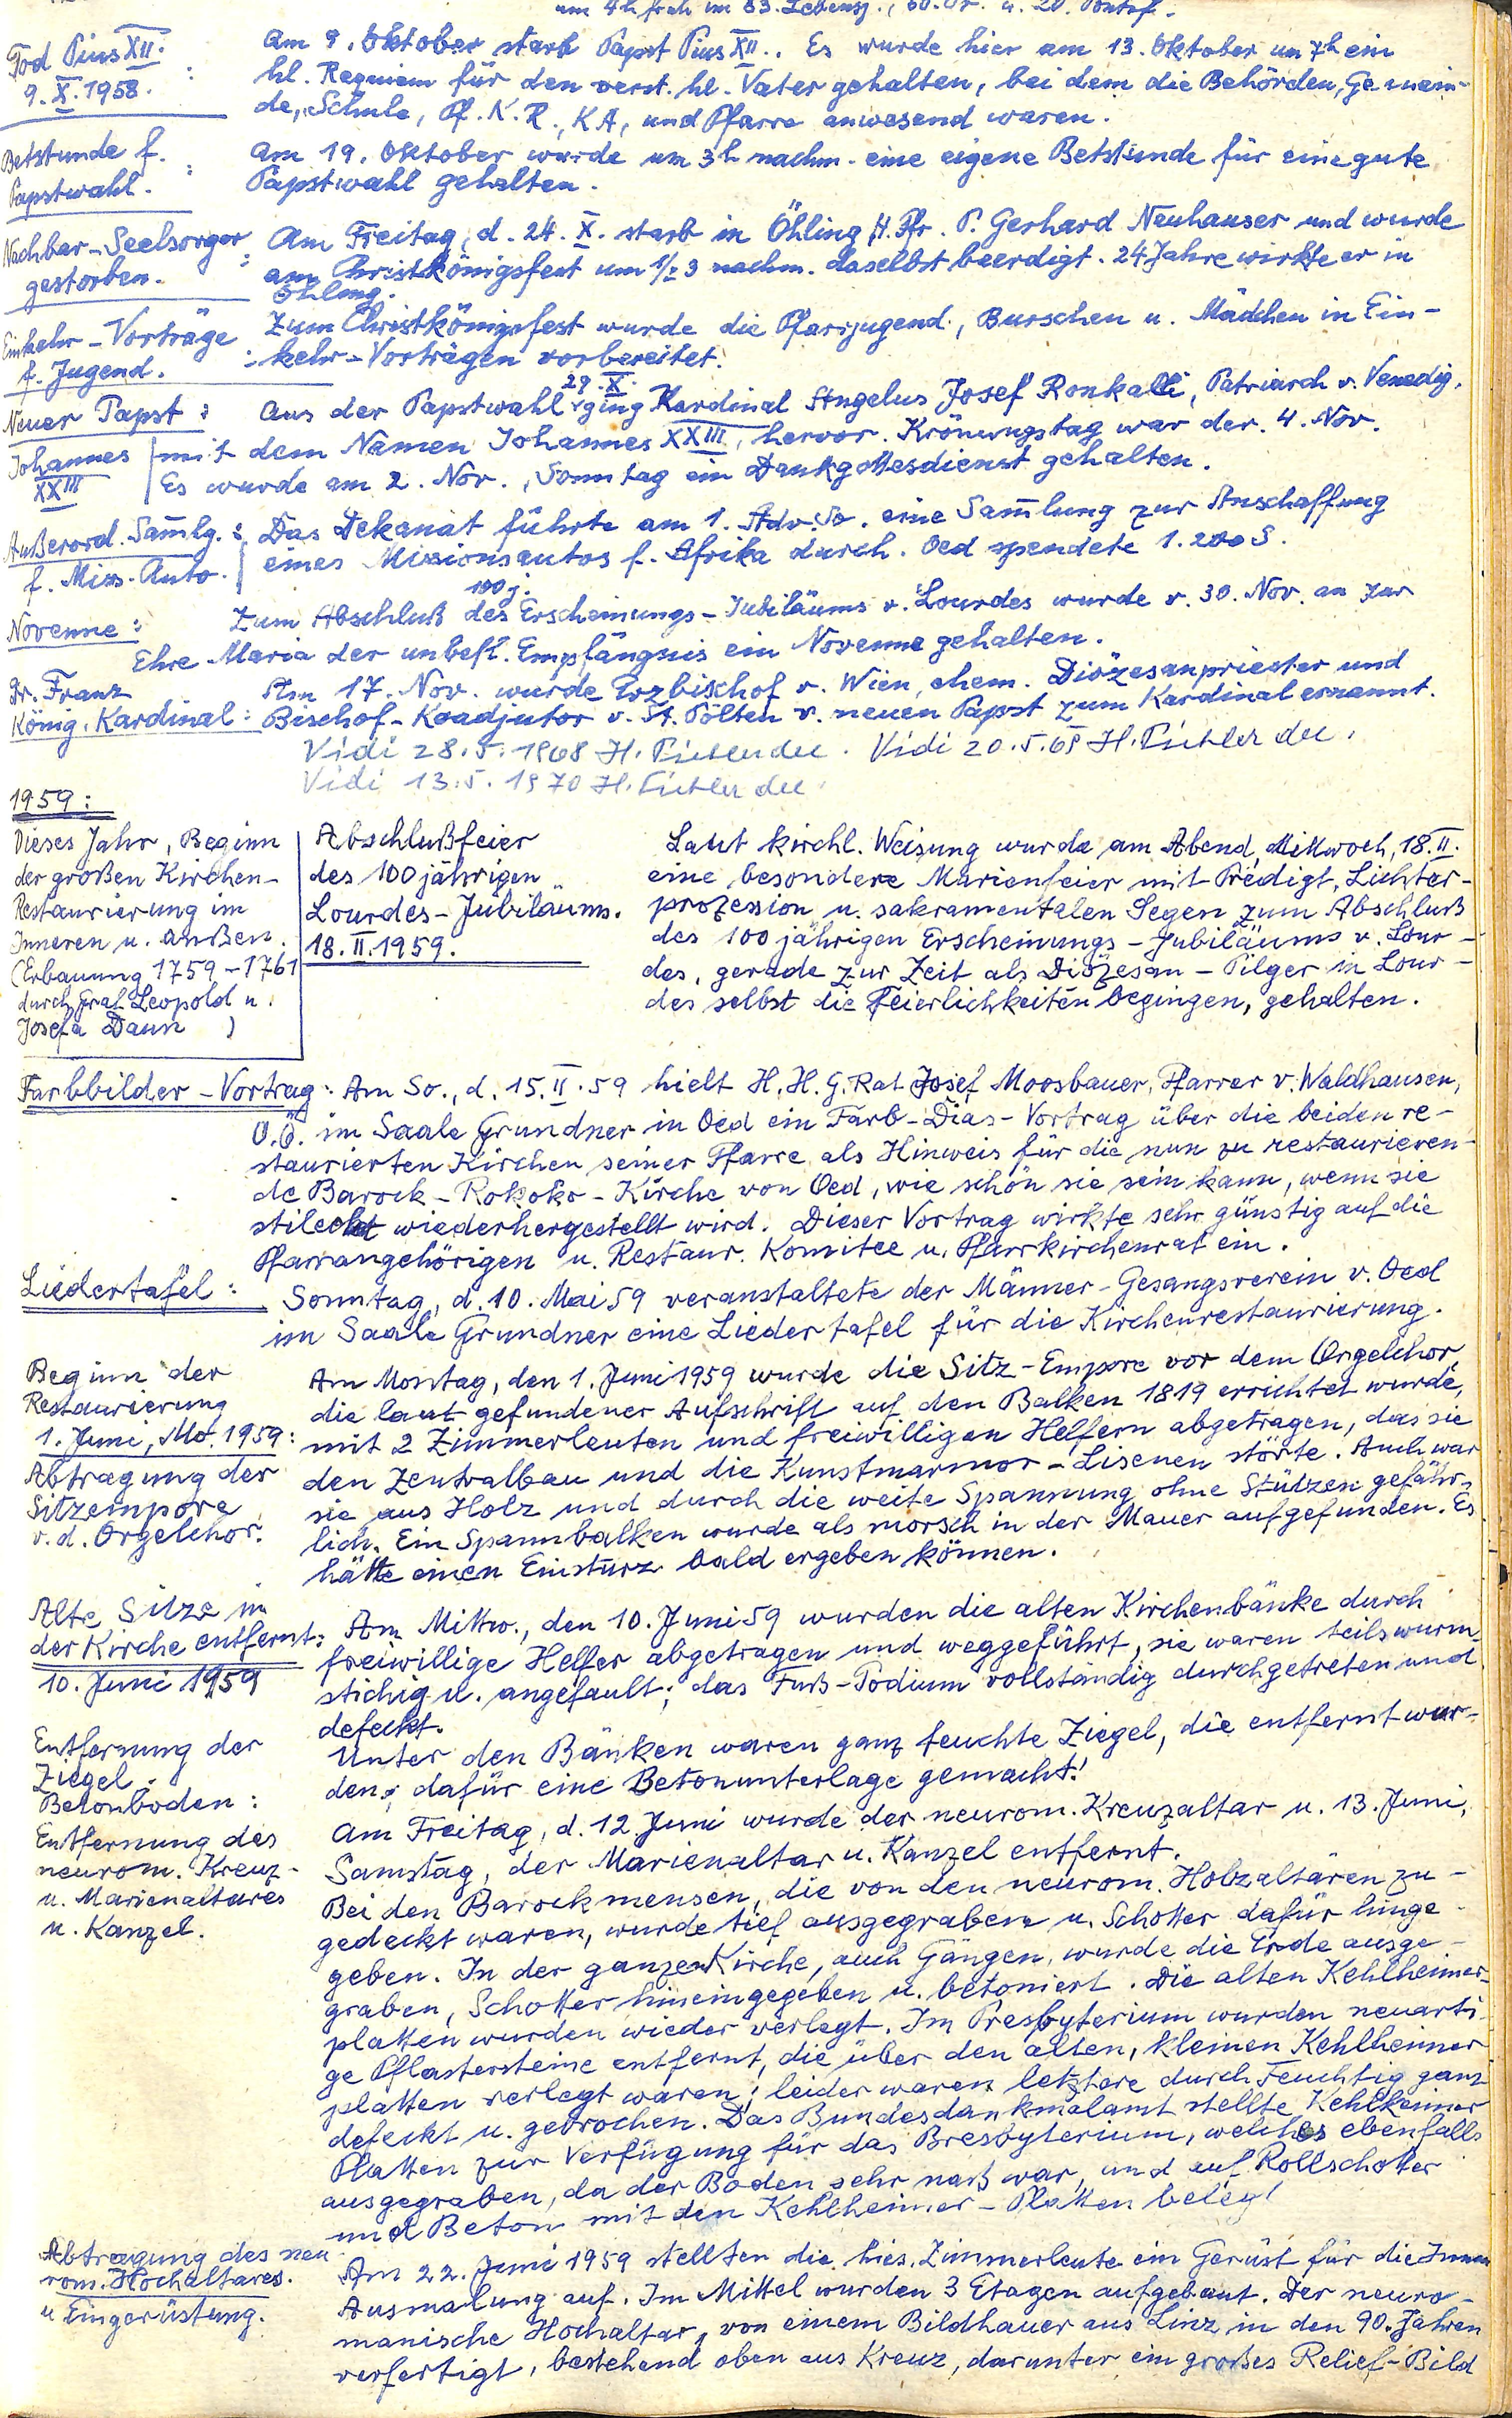 um 4h früh im 83. Lebensj.,
Tod Pius XII.
9. X. 1958. :
Am 9. Oktober starb Papst Pius XII.. Es wurde hier am 13. Oktober um 7h ein
hl. Requiem für den verst. hl. Vater gehalten, bei dem die Behörden, Gemein-
de, Schule, Pf.K.R., KA, und Pfarre anwesend waren.
Betstunde f.
Papstwahl. :
Am 19. Oktober wurde um 3h nachm. eine eigene Betstunde für eine gute
Papstwahl gehalten.
Nachbar-Seelsorger
gestorben. :
Am Freitag, d. 24. X. starb in Öhling H. Pfr. P. Gerhard Neuhauser und wurde
am Christkönigsfest um 1/2 3 nachm. daselbst beerdigt. 24 Jahre wirkte er in
Öhling.
Einkehr-Vorträge
f. Jugend. :
Zum Christkönigsfest wurde die Pfarrjugend, Burschen u. Mädchen in Ein-
kehr-Vorträgen vorbereitet.
Neuer Papst :
Johannes
XXIII
29. X.
Aus der Papstwahl ging Kardinal Angelus Josef Ronkalli, Patriarch v. Venedig,
mit dem Namen Johannes XXIII, hervor. Krönungstag war der 4. Nov.
Es wurde am 2. Nov., Sonntag ein Dankgottesdienst gehalten.
Außerord. Sam̄lg. :
f. Miss.-Auto.
Das Dekanat führte am 1. Adv. So. eine Sam̄lung zur Anschaffung
eines Missionsautos f. Afrika durch. Oed spendete 1.200 S.
Novenne :
100 j.
Zum Abschluß des Erscheinungs-Jubiläums v. Lourdes wurde v. 30. Nov. an zur
Ehre Maria der unbefl. Empfängnis ein Novenne gehalten.
Dr. Franz
König, Kardinal :
Am 17. Nov. wurde Erzbischof v. Wien, ehem. Diözesanpriester und
Bischof-Koadjutor v. St. Pölten v. neuen Papst zum Kardinal ernannt.
Vidi 28.5.1968 H. Vidi 20.5.69 H.
Vidi 13.5.1970 H.
1959 :
Dieses Jahr, Beginn
der großen Kirchen-
Restaurierung im
Inneren u. außen.
(Erbauung 1759-1761
durch Graf Leopold u.
Josefa Daun )
Abschlußfeier
des 100 jährigen
Lourdes-Jubiläums.
18. II. 1959.
Laut kirchl. Weisung wurde am Abend, Mittwoch, 18. II.
eine besondere Marienfeier mit Predigt, Lichter-
prozession u. sakramentalen Segen zum Abschluß
des 100 jährigen Erscheinungs-Jubiläums v. Lour-
des, gerade zur Zeit als Diözesan-Pilger in Lour-
des selbst die Feierlichkeiten begingen, gehalten.
Farbbilder-Vortrag :
Am So., d. 15. II. 59 hielt H.H.G.Rat Josef Moosbauer, Pfarrer v. Waldhausen,
O.Ö. im Saale Grundner in Oed ein Farb-Dias-Vortrag über die beiden re-
staurierten Kirchen seiner Pfarre als Hinweis für die nun zu restaurieren-
de Barock-Rokoko-Kirche von Oed, wie schön sie sein kann, wenn sie
stilecht wiederhergestellt wird. Dieser Vortrag wirkte sehr günstig auf die
Pfarrangehörigen u. Restaur. Komitee u. Pfarrkirchenrat ein.
Liedertafel :
Sonntag, d. 10. Mai 59 veranstaltete der Männer-Gesangsverein v. Oed
im Saale Grundner eine Liedertafel für die Kirchenrestaurierung.
Beginn der
Restaurierung
1. Juni, Mo. 1959 :
Abtragung der
Sitzempore
v. d. Orgelchor.
Am Montag, den 1. Juni 1959 wurde die Sitz-Empore vor dem Orgelchor,
die laut gefundener Aufschrift auf den Balken 1819 errichtet wurde,
mit 2 Zimmerleuten und freiwilligen Helfern abgetragen, das sie
den Zentralbau und die Kunstmarmor-Lisenen störte. Auch war
sie aus Holz und durch die weite Spannung ohne Stützen gefähr-
lich. Ein Spannbalken wurde als morsch in der Mauer aufgefunden. Es
hätte einen Einsturz bald ergeben können.
Alte Sitze in
der Kirche entfernt :
10. Juni 1959
Am Mittw., den 10. Juni 59 wurden die alten Kirchenbänke durch
freiwillige Helfer abgetragen und weggeführt, sie waren teils wurm-
stichig u. angefault; das Fuß-Podium vollständig durchgetreten und
defekt.
Entfernung der
Ziegel.
Betonboden :
Unter den Bänken waren ganz feuchte Ziegel, die entfernt wur-
den; dafür eine Betonunterlage gemacht!
Entfernung des
neurom. Kreuz-
u. Marienaltares
u. Kanzel.
Am Freitag, d. 12 Juni wurde der neurom. Kreuzaltar u. 13. Juni,
Samstag, der Marienaltar u. Kanzel entfernt.
Bei den Barockmensen, die von den neurom. Holzaltären zu-
gedeckt waren, wurde tief ausgegraben u. Schotter dafür hinge-
geben. In der ganzen Kirche, auch Gängen, wurde die Erde ausge-
graben, Schotter hineingegeben u. betoniert. Die alten Kehlheimer-
platten wurden wieder verlegt. Im Presbyterium wurden neuarti-
ge Pflastersteine entfernt, die über den alten, kleinen Kehlheimer
platten verlegt waren; leider waren letztere durch Feuchtig ganz
defekt u. gebrochen. Das Bundesdankmalamt stellte Kehlheimer
Platten zur Verfügung für das Bresbyterium, welches ebenfalls
ausgegraben, da der Boden sehr naß war, und auf Rollschotter
und Beton mit den Kehlheimer-Platten belegt
Abtragung des neu
rom. Hochaltares.
u Eingerüstung.
Am 22. Juni 1959 stellten die hies. Zimmerleute ein Gerüst für die Innen
Ausmalung auf. Im Mittel wurden 3 Etagen aufgebaut. Der neuro-
manische Hochaltar, von einem Bildhauer aus Linz in den 90. Jahren
verfertigt, bestehend oben aus Kreuz, darunter ein großes Relief-Bild